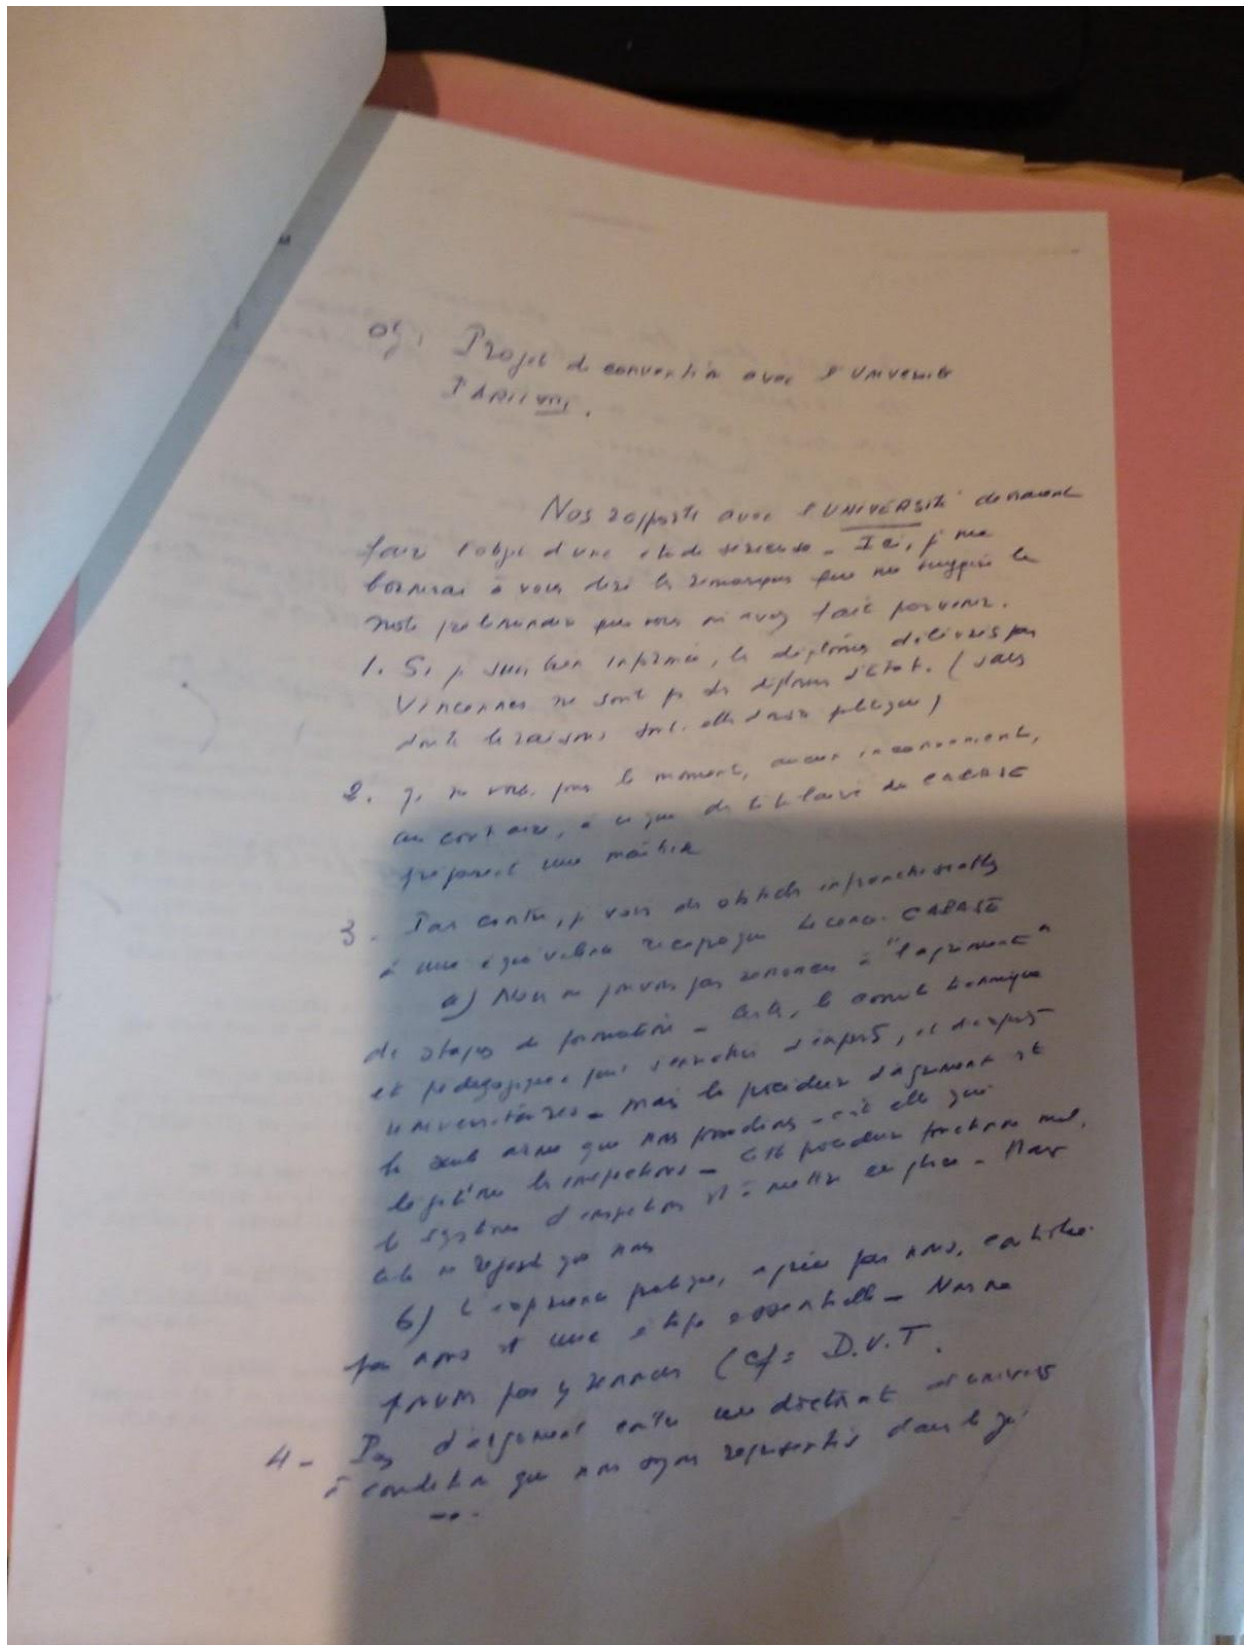 Obj : Projet de convention avec l'Université
PARIS VIII.
Nos rapports avec l'UNIVERSITÉ devraient
faire l'objet d'une étude sérieuse - Ici, je me
bornerai à vous dire les remarques que me suggère la
note préliminaire que vous m'avez fait parvenir.
1. Si je suis bien informé, les diplômes délivrés par
Vincennes ne sont pas des diplômes d'Etat. (sans
doute les raisons sont-elles d'ordre politique)
2. Je ne vois, pour le moment, aucun inconvénient,
au contraire, à ce que des titulaires du CAPASE
préparent une maîtrise
3 - Par contre, je vois des obstacles infranchissables
à une équivalence réciproque licence-CAPASE
a) Nous ne pouvons pas renoncer à "l'agrément"
de stages de formation - Certes, le conseil technique
et pédagogique peut s'enrichir d'experts, et d'experts
universitaires - mais la procédure d'agrément est
la seule arme que nous possédions - c'est elle qui
légitime les inspections - Cette procédure fonctionne mal,
le système d'inspection est à mettre en place - Mais
cela ne regarde que nous
b) L'expérience pratique, agréée par nous, contrôlée
par nous est une étape essentielle - Nous ne
pouvons pas y renoncer (cf = D.V.T.
4 - Pas d'argument contre un doctorat d'université
à condition que nous soyons représentés dans le jury